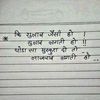 कि गुलाब जैसी हो !
गुलाब लगती हो !
थोडा सा मुस्कुरा दो तो
लाजवाब लगती हो ..